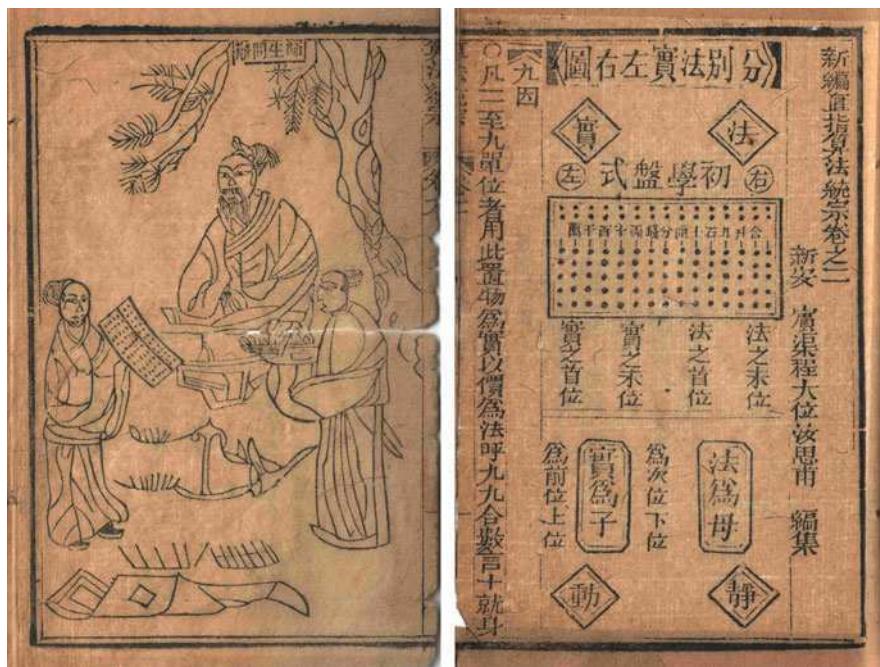 新編直指算法統宗卷之二
新安 賓渠程大位汝思甫 編集
分別法實左右圖
法 實
右 初學盤式 左
合 升 斗 石 十 兩 分 錢 兩 十 百 千 萬
法之末位
法之首位
實之末位
實之首位
法為母
為次位下位
實為子
為前位上位
靜 動
九因
○凡二至九單位者用此置物為實以價為法呼九九合數言十就身
師生問難